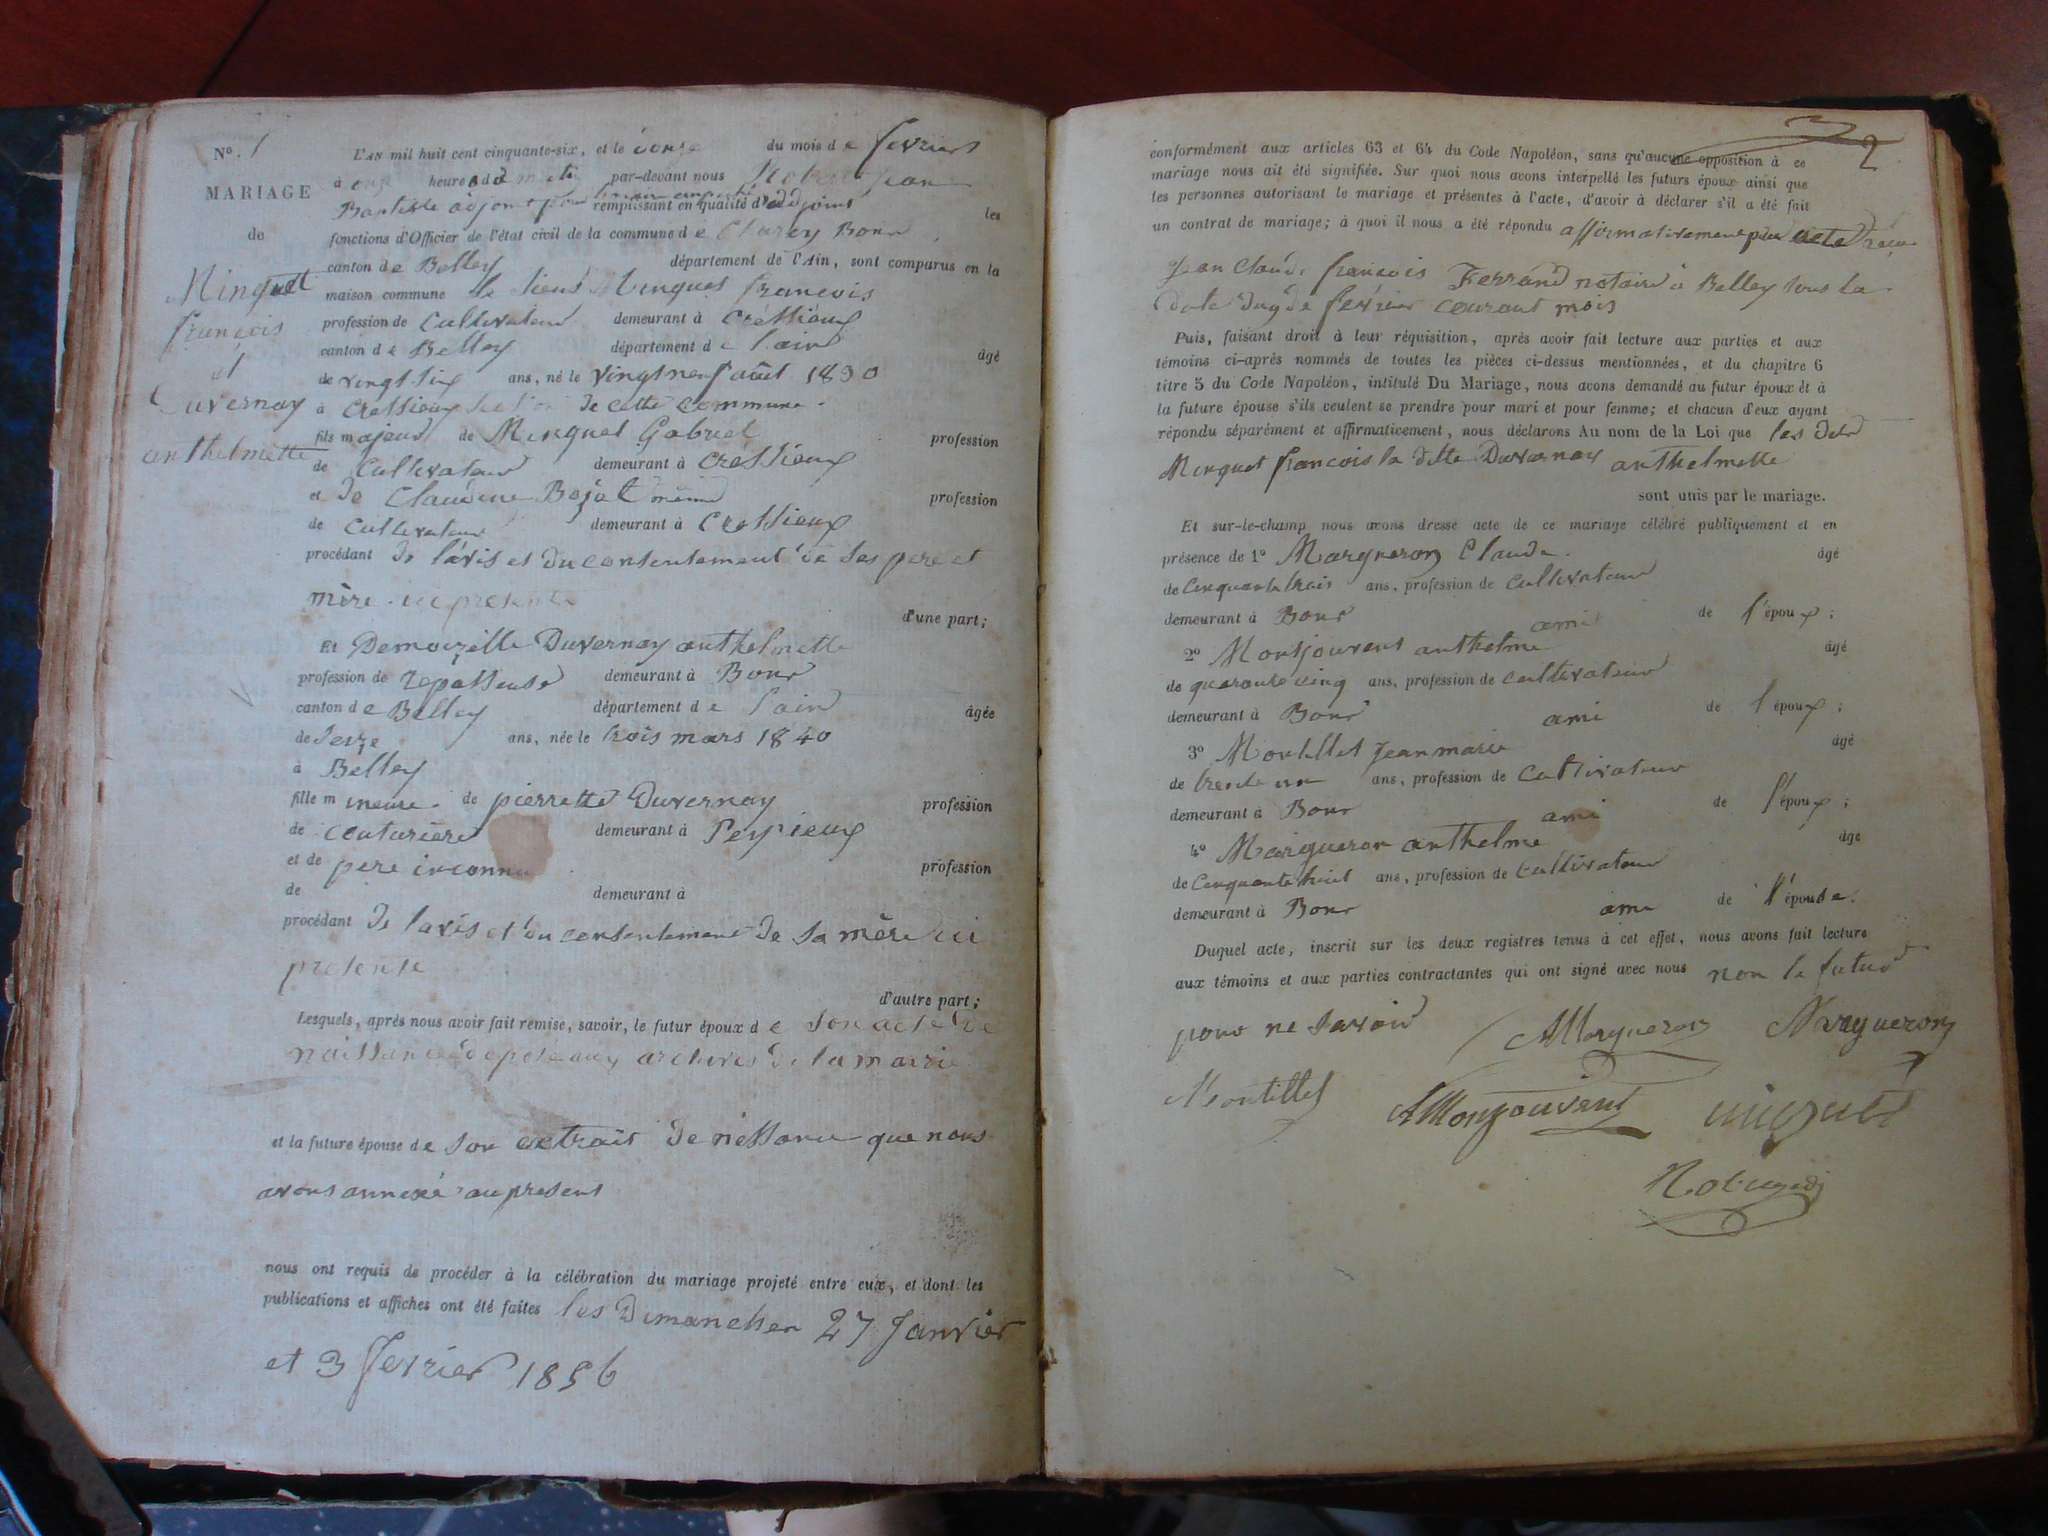 N°. 1
MARIAGE
de
Minguet
françois
et
Duvernay
anthelmette
L'AN mil huit cent cinquante-six, et le onze du mois de fevrier
à onze heures du matin par-devant nous Jean
Baptiste adjoint pour remplissant en qualité d'adjoint les
fonctions d'Officier de l'état civil de la commune de Chazey Bons,
canton de Belley département de l'Ain, sont comparus en la
maison commune le sieur Minguet françois
profession de Cultivateur demeurant à Cressieux
canton de Belley département de l'ain âgé
de vingt six ans, né le vingt neuf août 1830
à Cressieux de cette commune.
fils majeur de Minguet Gabriel profession
de Cultivateur demeurant à Cressieux
et de Claudine Bojat profession
de Cultivateur demeurant à Cressieux
procédant de l'avis et du consentement de ses pere et
mère ici present
d'une part;
Et Demoizelle Duvernay anthelmette
profession de repasseuse demeurant à Bons
canton de Belley département de l'ain âgée
de seize ans, née le trois mars 1840
à Belley
fille mineure de pierrette Duvernay profession
de couturiere demeurant à Peyzieux
et de pere inconnu profession
de demeurant à
procédant de l'avis et du consentement de sa mère ici
presente
d'autre part;
Lesquels, après nous avoir fait remise, savoir, le futur époux de son acte de
naissance déposé aux archives de la mairie
et la future épouse de son extrait de nessance que nous
avons annexé au present
nous ont requis de procéder à la célébration du mariage projeté entre eux, et dont les
publications et affiches ont été faites les Dimanches 27 Janvier
et 3 fevrier 1856
2
conformément aux articles 63 et 64 du Code Napoléon, sans qu'aucune opposition à ce
mariage nous ait été signifiée. Sur quoi nous avons interpellé les futurs époux ainsi que
les personnes autorisant le mariage et présentes à l'acte, d'avoir à déclarer s'il a été fait
un contrat de mariage; à quoi il nous a été répondu affirmativement par acte reçu
Jean Claude françois Ferrand notaire à Belley sous la
date du 9 de fevrier courant mois
Puis, faisant droit à leur réquisition, après avoir fait lecture aux parties et aux
témoins ci-après nommés de toutes les pièces ci-dessus mentionnées, et du chapitre 6
titre 5 du Code Napoléon, intitulé Du Mariage, nous avons demandé au futur époux et à
la future épouse s'ils veulent se prendre pour mari et pour femme; et chacun d'eux ayant
répondu séparément et affirmativement, nous déclarons Au nom de la Loi que les dits
Minguet françois la ditte Duvernay anthelmette
sont unis par le mariage.
Et sur-le-champ nous avons dressé acte de ce mariage célébré publiquement et en
présence de 1° Margueron Claude. âgé
de Cinquante trois ans, profession de cultivateur
demeurant à Bons ami de l'époux;
2° Montjouvent anthelme âgé
de quarante cinq ans, profession de cultivateur
demeurant à Bons ami de l'époux;
3° Montillet Jean marie âgé
de trente un ans, profession de Cultivateur
demeurant à Bons ami de l'époux;
4° Margueron anthelme âgé
de Cinquante huit ans, profession de Cultivateur
demeurant à Bons ami de l'épouse.
Duquel acte, inscrit sur les deux registres tenus à cet effet, nous avons fait lecture
aux témoins et aux parties contractantes qui ont signé avec nous non le futur
pour ne savoir AMargueron Margueron
Montillet AMonjouvent minguet